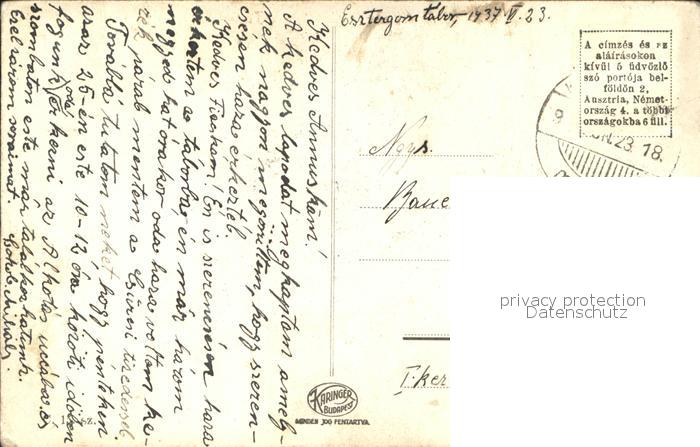 Esztergom tábor, 1937 V. 23.
Kedves Annuskám!
A kedves lapodat megkaptam amely-
nek nagyon megörültem, hogy szeren-
csésen haza érkeztél.
Kedves Fiaskám! Én is szerencsésen haza
érkeztem a táborba, én már három
negyed hat órakor oda haza voltam ke-
rék párral mentem a
Továbbá tudatom neked hogy pénteken
azaz 25-én este 10-12 óra közötti időben
fogunk érkezni az Alkotás uccába és
szombaton este már találkozhatunk.
Ezzel zárom soraimat.
A címzés és az
aláírásokon
kívül 5 üdvözlő
szó portója bel-
földön 2,
Ausztria, Német-
ország 4, a többi
országokba 6 fill.
23. 18.
Ngys.
Baue
I. ker
KARINGER
BUDAPEST
MINDEN JOG FENTARTVA.
sz.
privacy protection
Datenschutz